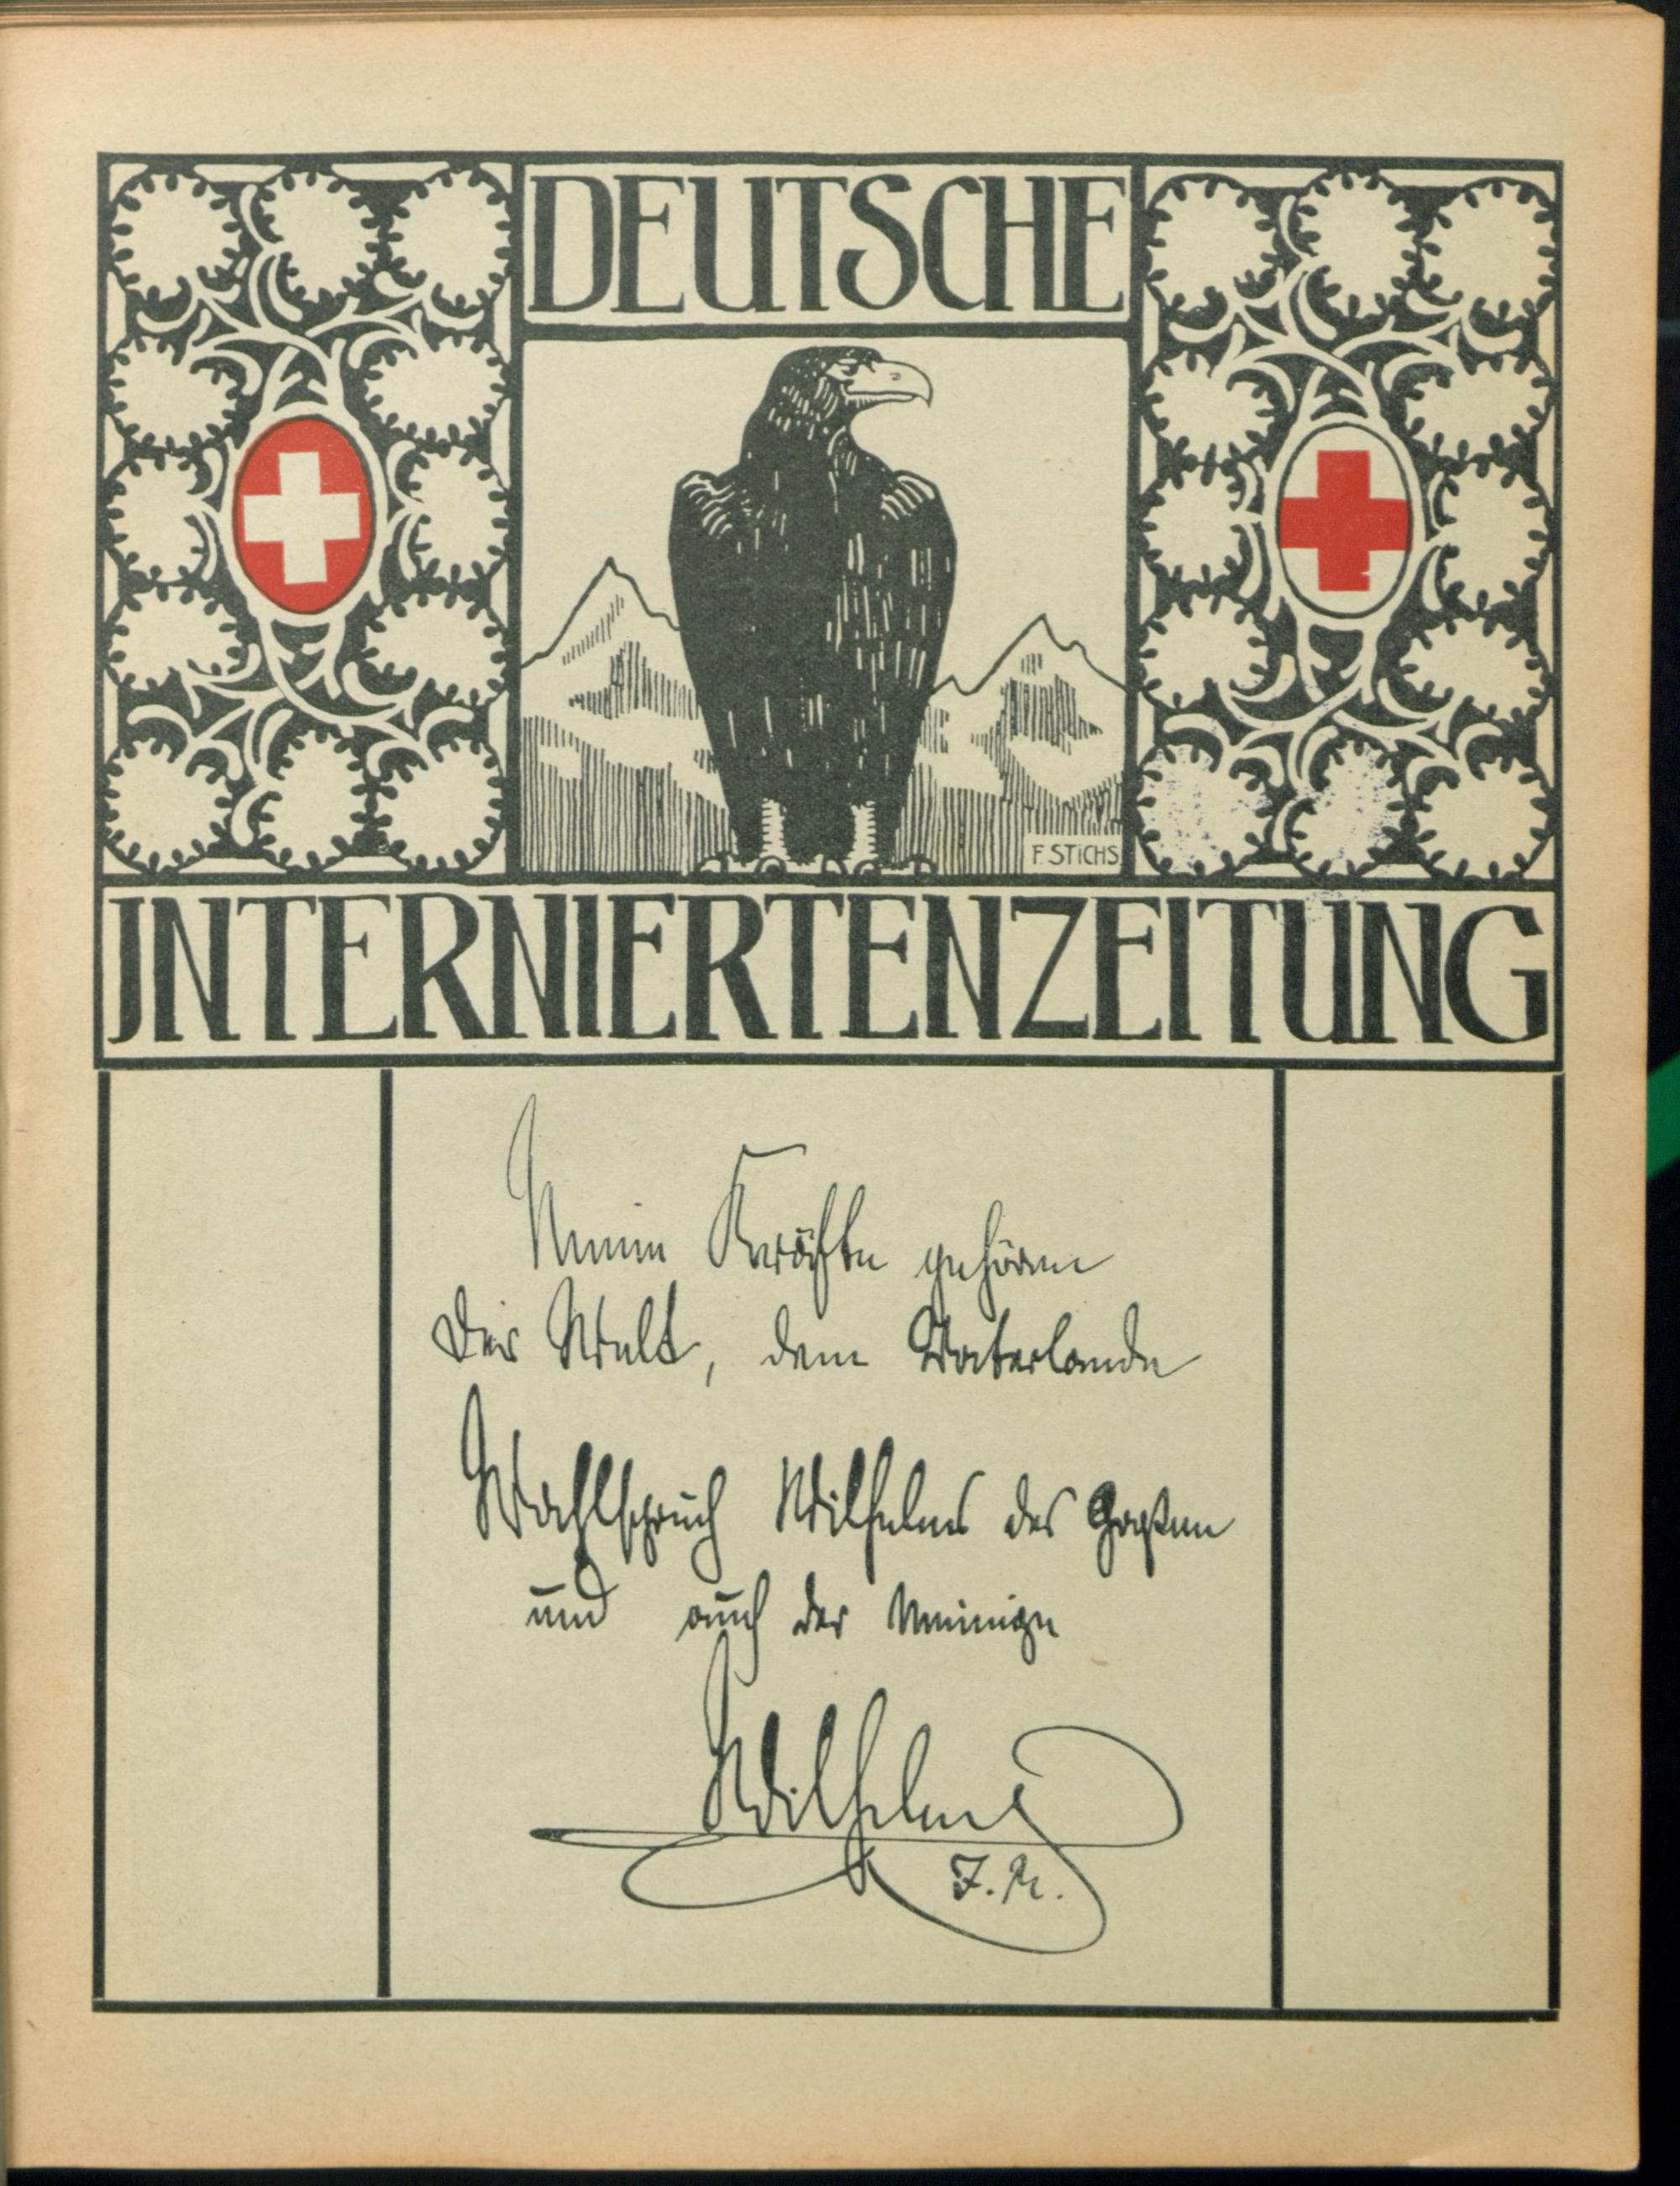 DEUTSCHE
F. STICHS
INTERNIERTENZEITUNG
Meine Kräfte gehören
der Welt, dem Vaterlande
Wahlspruch Wilhelms des Großen
und auch der meinige
Wilhelm
I. R.